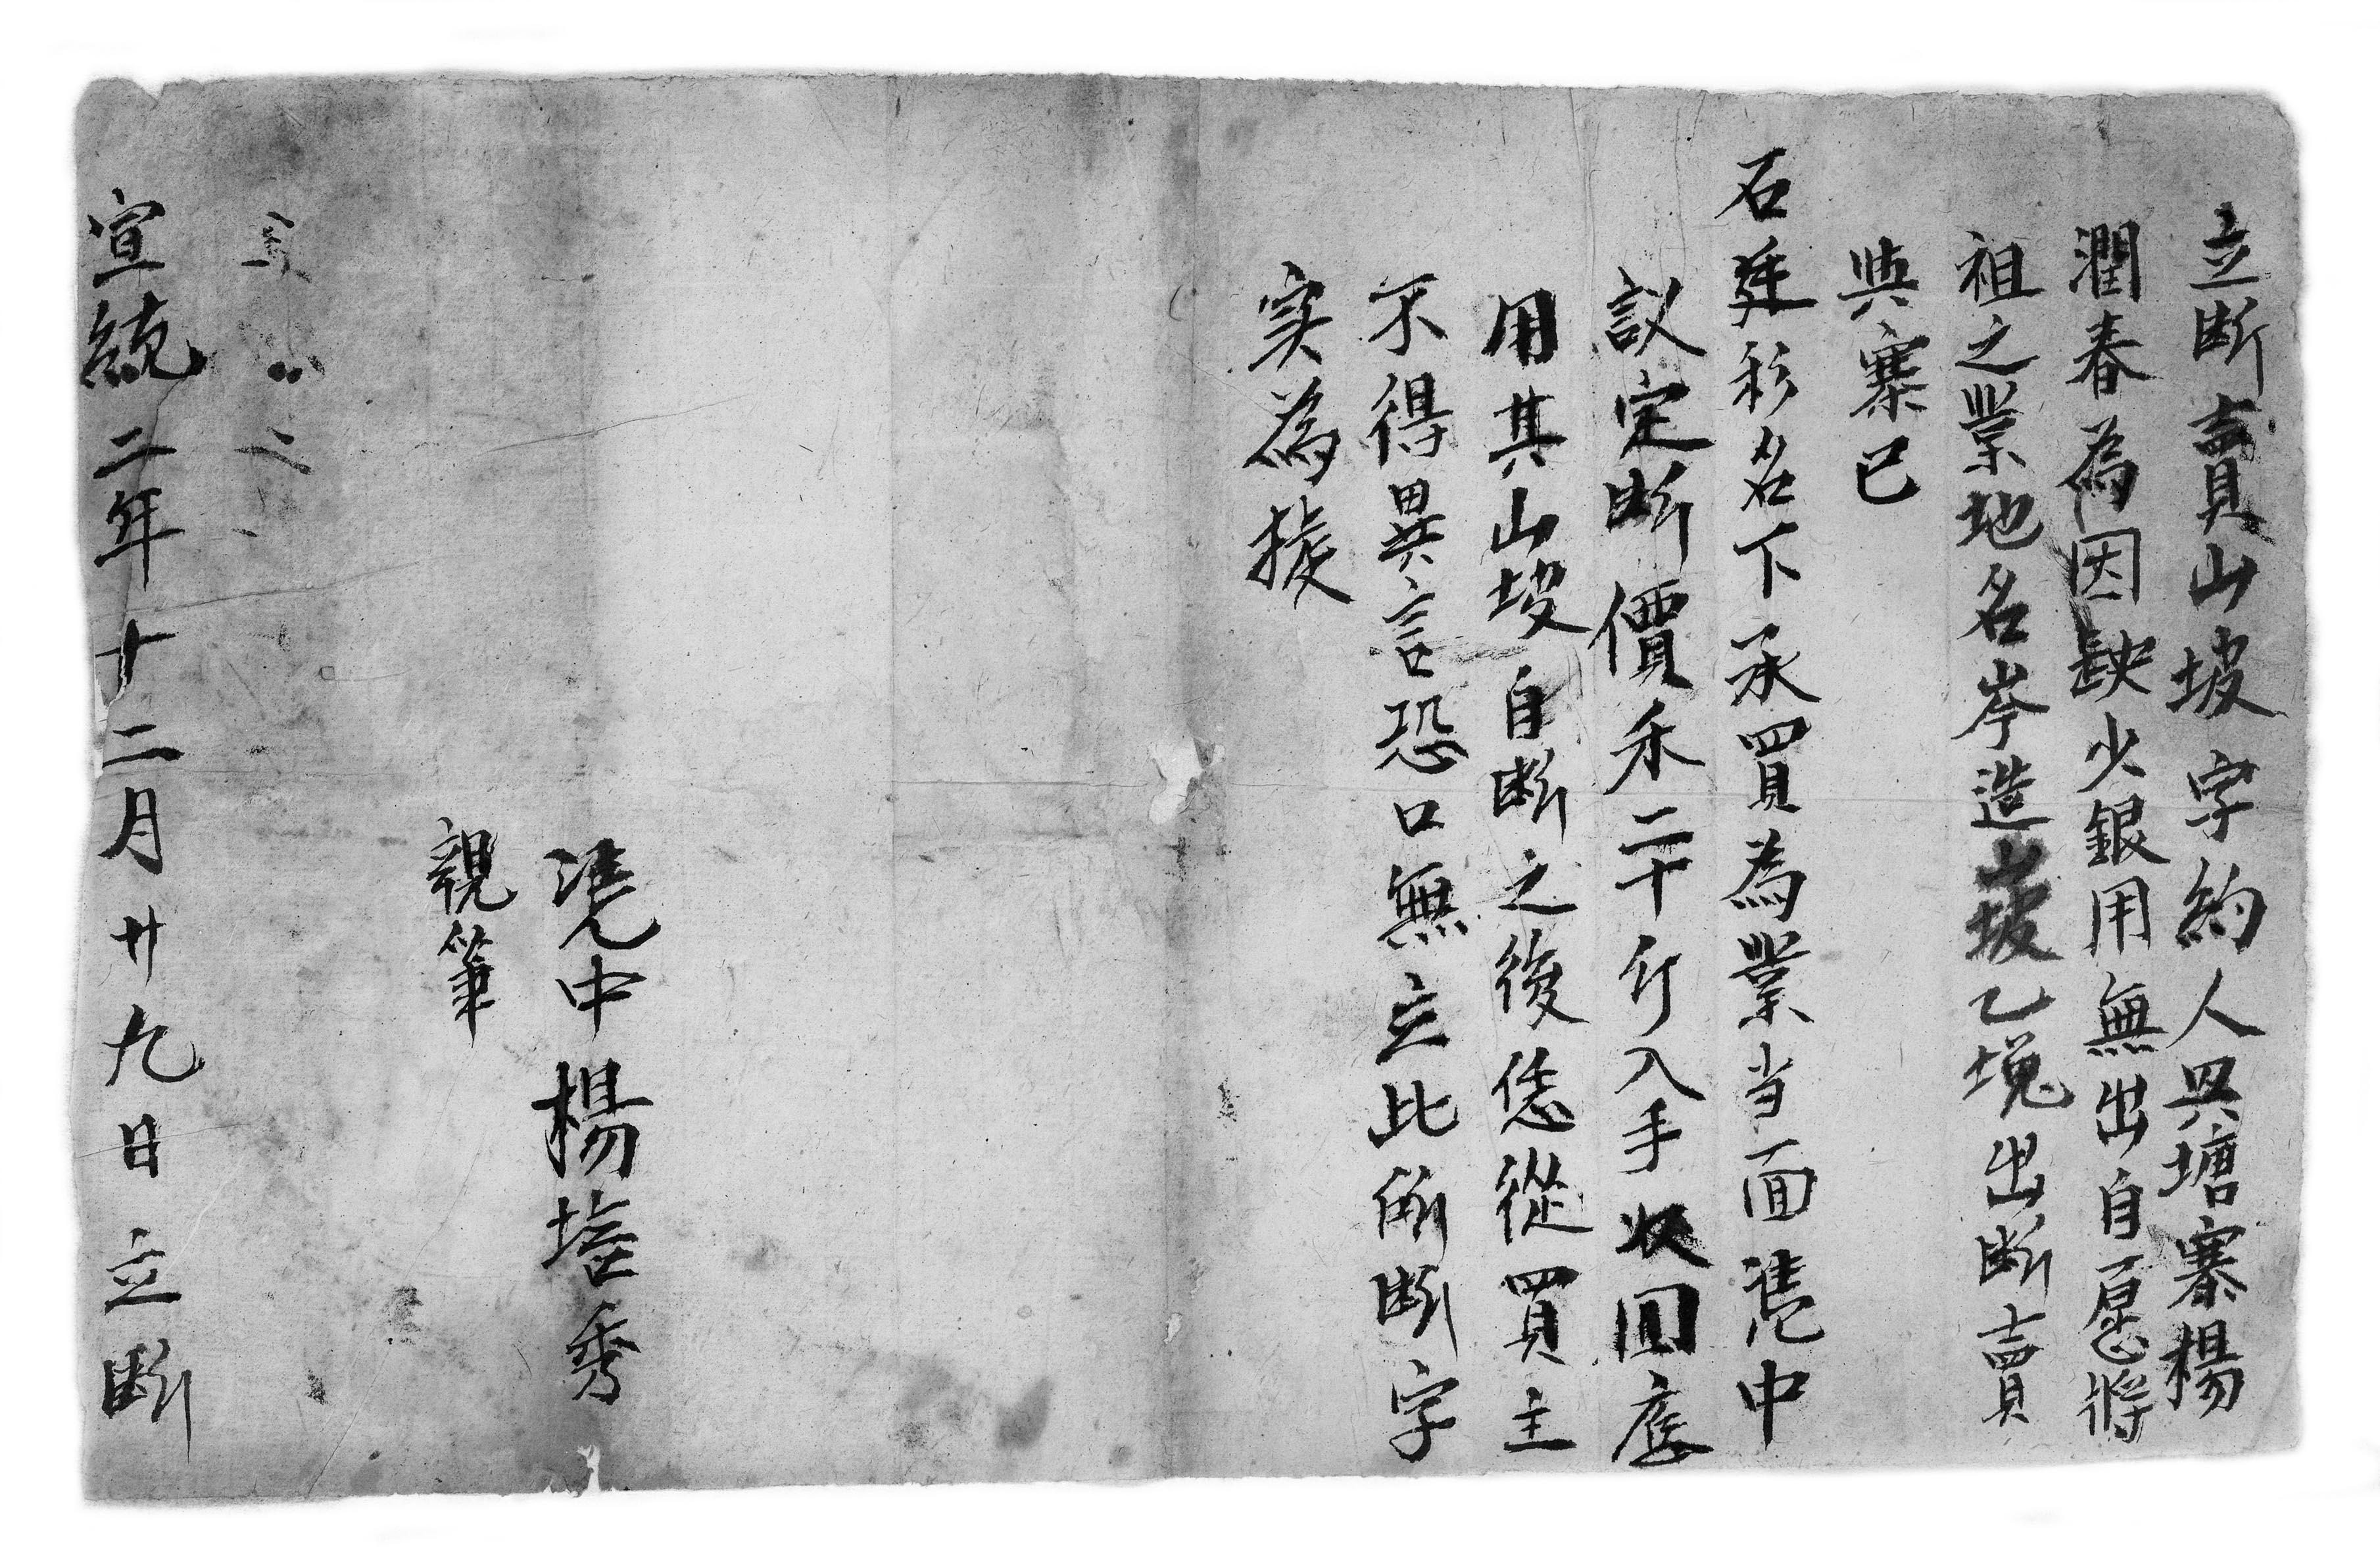 立断賣山坡字約人吳塘寨楊
潤春為因缺少銀用無出自愿將
祖之業地名岑造山坡乙塊出断賣
與寨巳
石廷彩名下承買為業当面凴中
議定断價禾二十斤入手收回應
用其山坡自断之後恁從買主
不得異言恐口無立此断字
实為據
凴中楊秀
親筆
宣統二年十二月廿九日立断